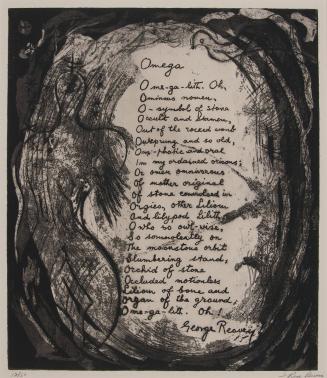 Omega
O me-ga-lith. Oh,
Ominous nomen,
O - symbol of stone
Occult and
Out of the womb
and so old,
and oral
In my ordained orisons;
Or omnivorous
Of mother original
Of stone concealed in
Orgies, other Ilium
And lilypod Lilith
O who so owl-wise,
So somnolently on
The moonstone orbit
Slumbering stand,
Orchid of stone
Occluded motionless
Ilium of bone and
organ of the ground,
O me-ga-lith. Oh!
George Reavey